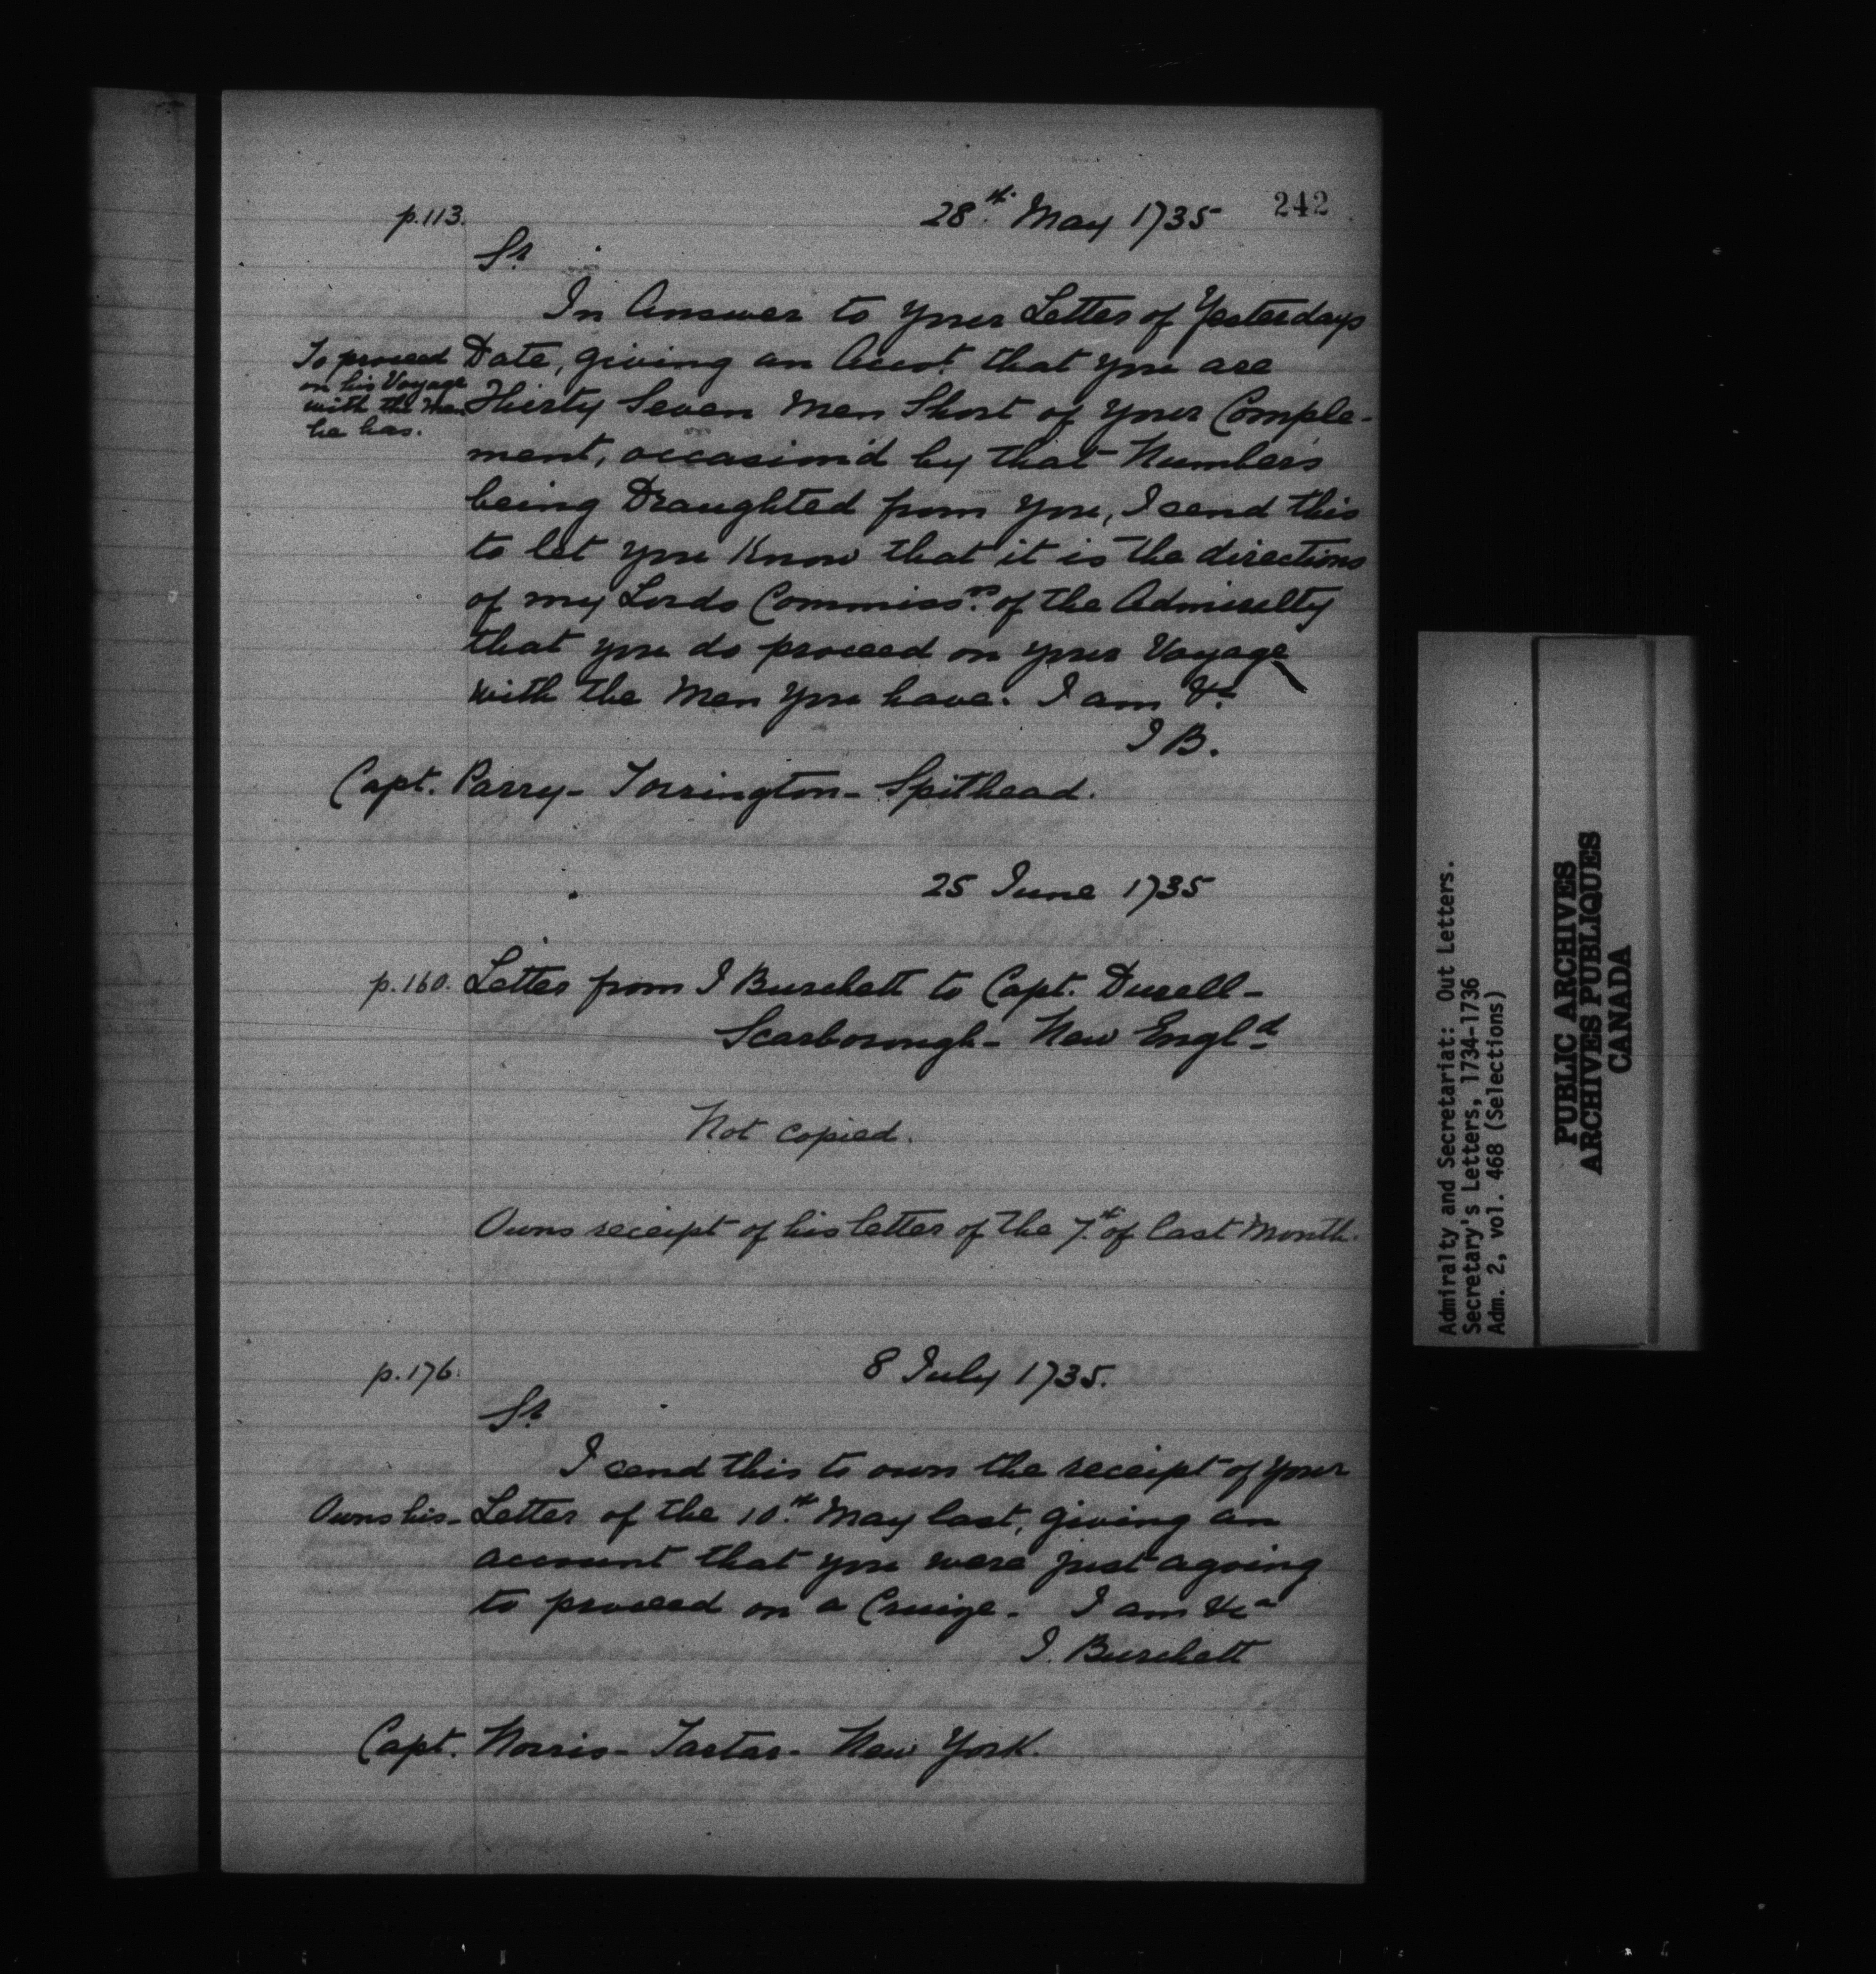 242
p.113. 28th May 1735
Sr
In Answer to your Letter of Yesterdays
To proceed on his Voyage with the Men he has.
Date, giving an Accot. that you are
Thirty Seven Men Short of your Comple-
ment, occasion'd by that Numbers
being Draughted from you, I send this
to let you Know that it is the directions
of my Lords Commissrs. of the Admiralty
that you do proceed on your Voyage
with the Men you have. I am &c.
J B.
Capt. Parry - Torrington - Spithead.
25 June 1735
p.160. Letter from J Burchett to Capt. Durell -
Scarborough - New Engld
Not copied.
Owns receipt of his letter of the 7th. of last Month.
p.176. 8 July 1735.
Sr
I send this to own the receipt of your
Owns his - Letter of the 10th. May last, giving an
account that you were just agoing
to proceed on a Cruize. I am &ca
J. Burchett
Capt. Norris - Tartar - New York.
Admiralty and Secretariat: Out Letters.
Secretary's Letters, 1734-1736
Adm. 2, vol. 468 (Selections)
PUBLIC ARCHIVES
ARCHIVES PUBLIQUES
CANADA